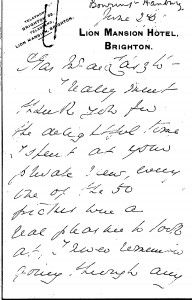 June 28
TELEPHONE
BRIGHTON
TELEGRAMS
LION MANSION, BRIGHTON.
LION MANSION HOTEL,
BRIGHTON.
I really must
thank you for
the delightful time
I spent at your
private view, every
one of the 50
pictures were a
real pleasure to look
at, I never remember
going through any